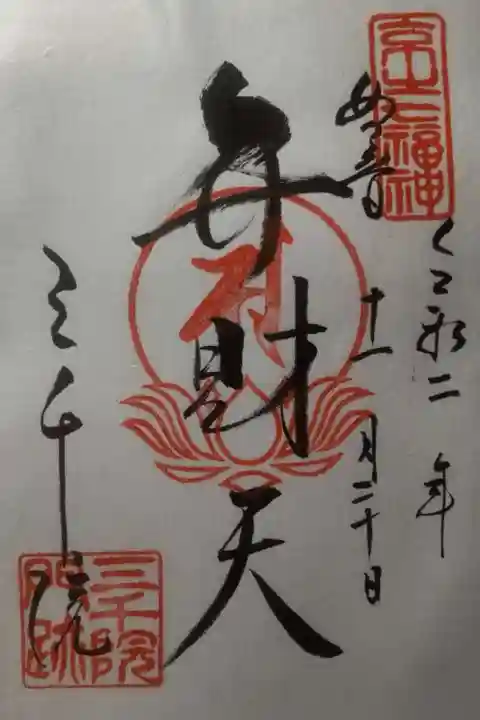 七福神
令和二年
十一月二十日
弁財天
三千院
三千院
門跡